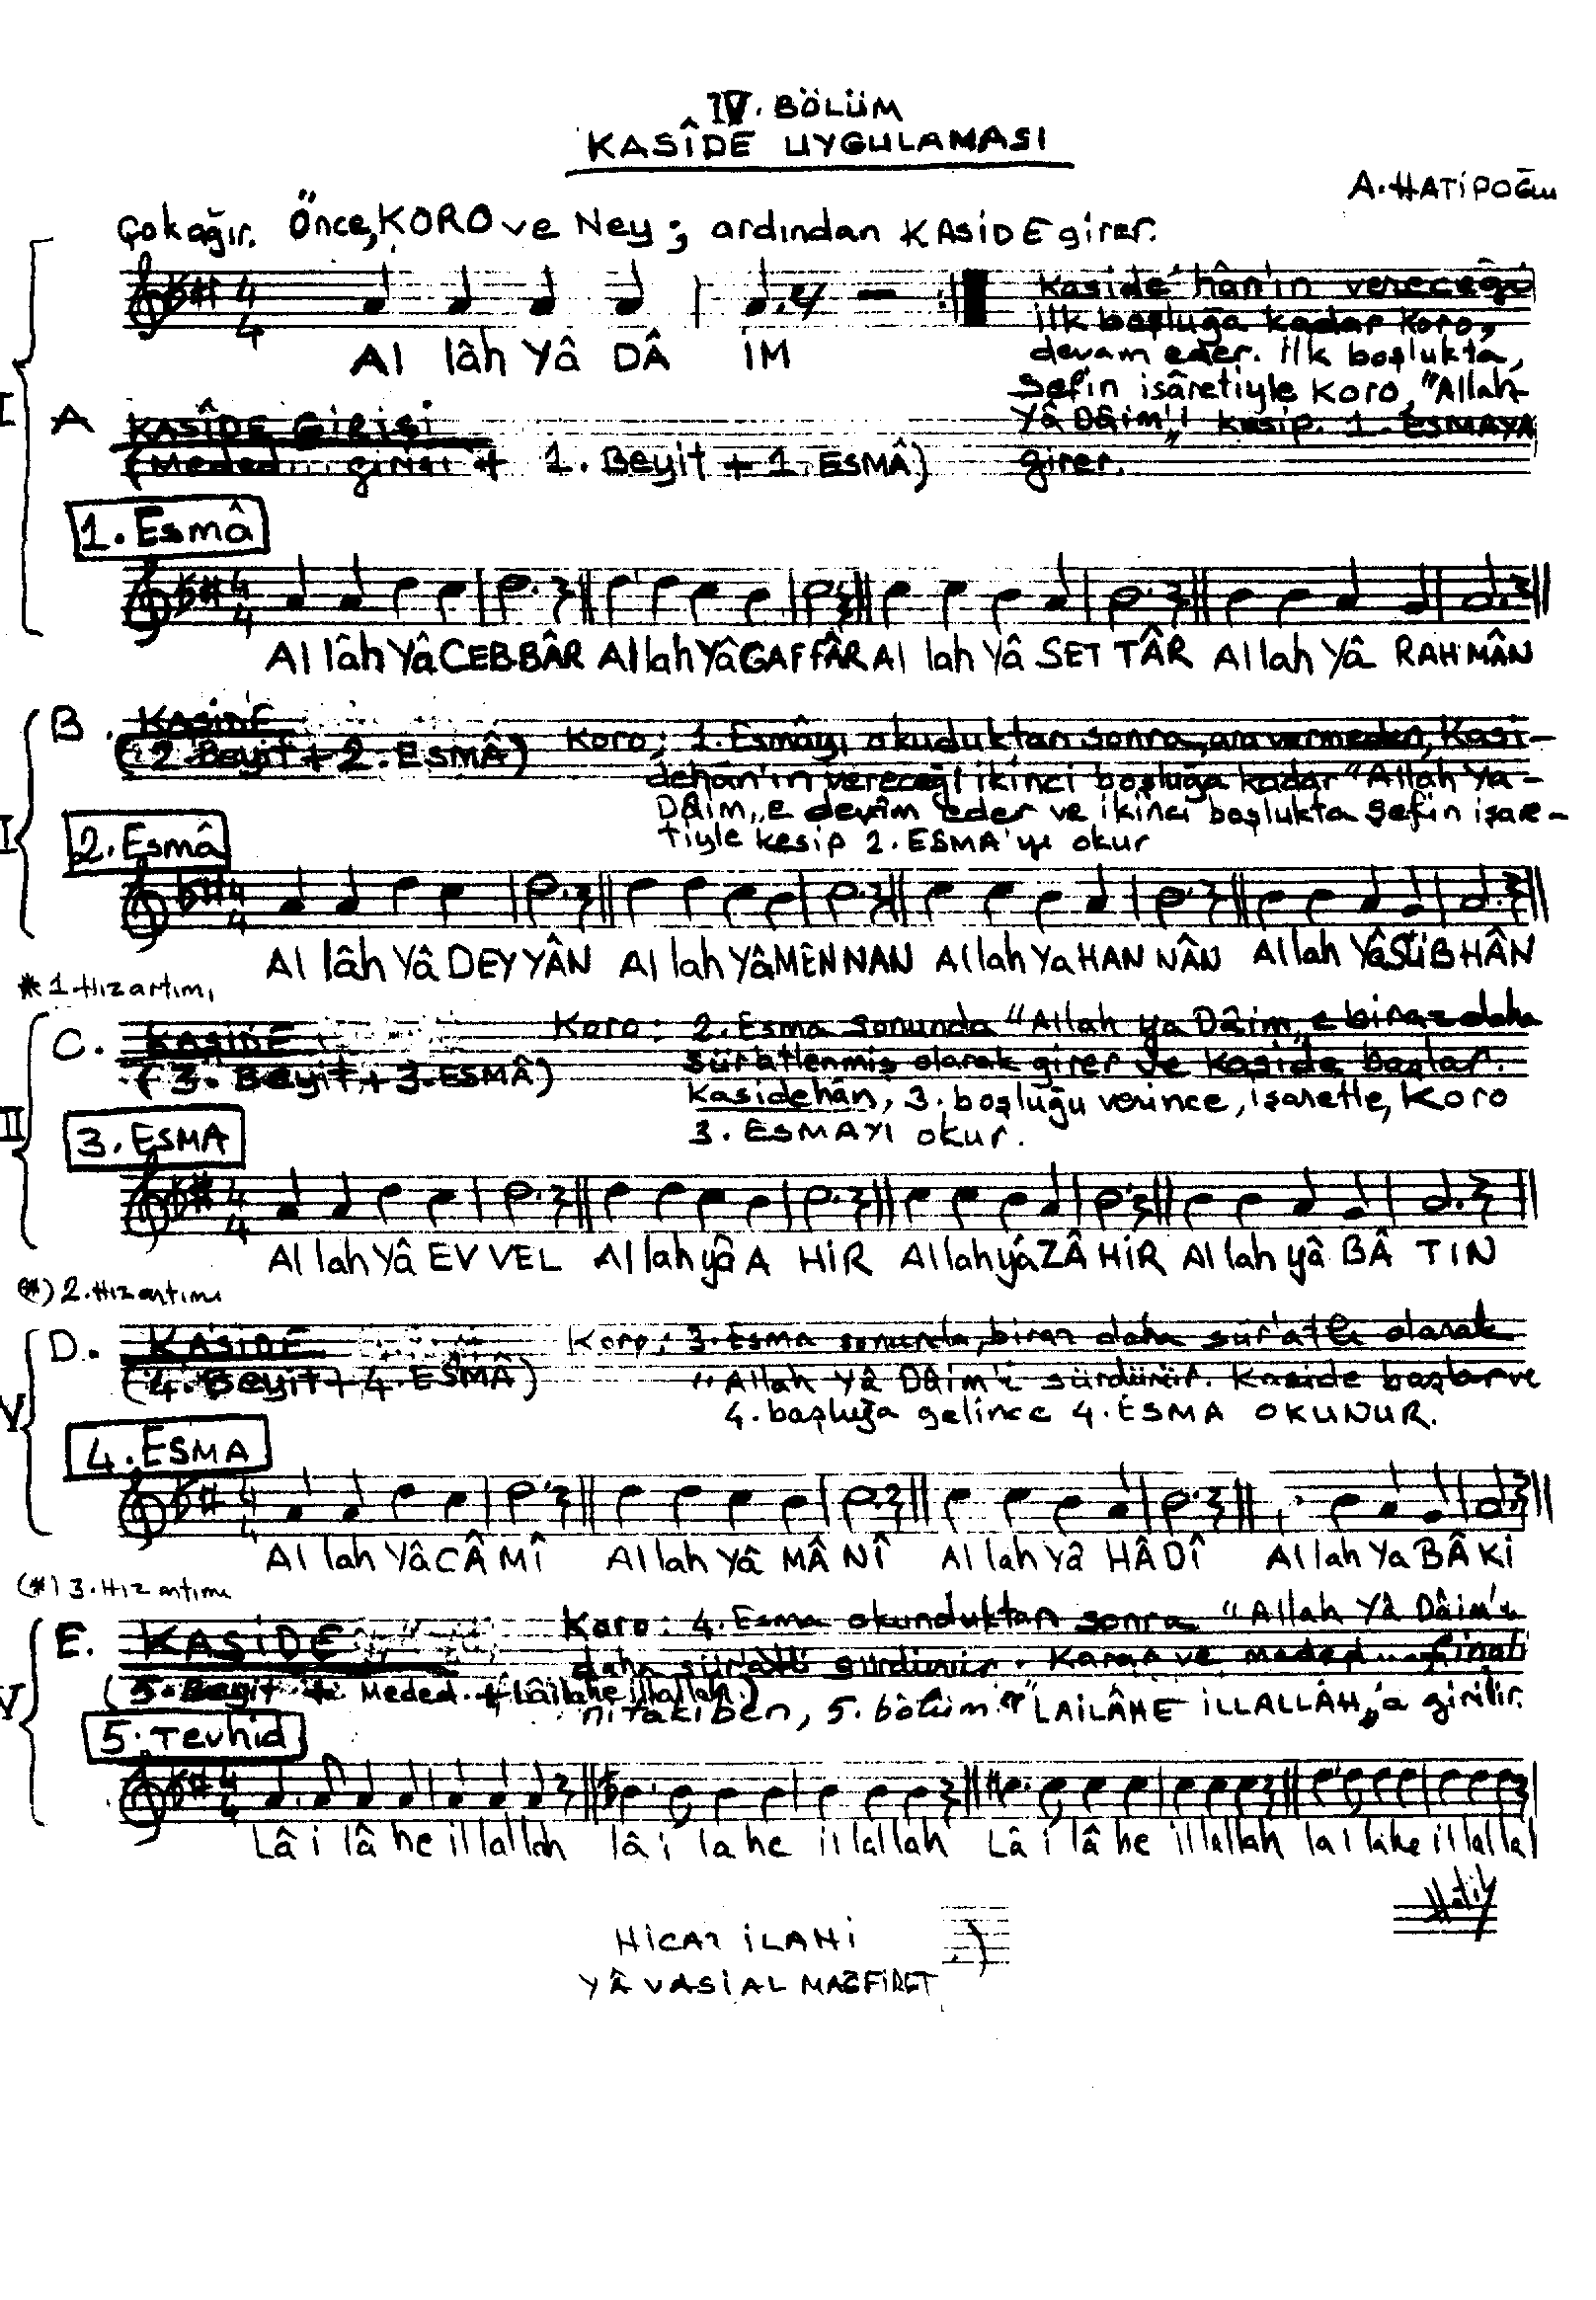 IV. BÖLÜM
KASÎDE UYGULAMASI
A. HATİPOĞLU
Çok ağır. Önce, KORO ve Ney; ardından KASİDE girer.
Al lâh Yâ DÂ İM
Kaside'hân'ın vereceği
ilk boşluğa kadar Koro,
devam eder. İlk boşlukta,
Şef'in işâretiyle Koro, "Allah
Yâ Dâim"'i kesip. 1. ESMAYA
girer.
I
A KASÎDE GİRİŞİ
(Meded... girişi + 1. Beyit + 1. ESMÂ)
1. Esmâ
Al lâh Yâ CEB BÂR Al lah Yâ GAF FÂR Al lah Yâ SET TÂR Al lah Yâ RAH MÂN
B. KASİDE
(2. Beyit + 2. ESMÂ)
Koro; 1. Esmâyı okuduktan sonra, ara vermeden, Kasi-
dehân'ın vereceği ikinci boşluğa kadar "Allah Ya-
Dâim,, e devâm eder ve ikinci boşlukta şefin işare-
tiyle kesip 2. ESMA'yı okur
I
2. Esmâ
Al lâh Yâ DEY YÂN Al lah Yâ MEN NAN Al lah Ya HAN NÂN Al lah Yâ SÜB HÂN
* 1. Hız artımı
C. KASİDE
(3. Beyit + 3. ESMÂ)
Koro: 2. Esma sonunda "Allah ya Dâim,, e biraz daha
sür'atlenmiş olarak girer ve Kaside başlar.
Kasidehân, 3. boşluğu verince, işaretle, Koro
3. ESMAYI okur.
II
3. ESMA
Al lah Yâ EV VEL Al lah yâ A HİR Al lah yâ ZÂ HİR Al lah yâ BÂ TIN
(*) 2. Hız artımı
D. KASİDE
(4. Beyit + 4. ESMÂ)
Koro; 3. Esma sonunda, biraz daha sür'atli olarak
"Allah Yâ Dâim'i sürdürür. Kaside başlar ve
4. boşluğa gelince 4. ESMA OKUNUR.
V
4. ESMA
Al lah Yâ CÂ MÎ Al lah Yâ MÂ NÎ Al lah Yâ HÂ DÎ Al lah Ya BÂ Kİ
(*) 3. Hız artımı
E. KASİDE
(5. Beyit + Meded.. + Lâilahe illallah.)
Koro: 4. Esma okunduktan sonra "Allah Yâ Dâim'i
daha sür'atli sürdürür. Karar ve meded... finali
ni takiben, 5. bölüm "LAİLÂHE İLLALLÂH,,'a girilir.
V
5. Tevhid
Lâ i lâ he il lal lah lâ i la he il lal lah Lâ i lâ he il lal lah la i lahe il lal lal
Hatip
HİCAZ İLAHİ
YÂ VASİAL MAĞFİRET